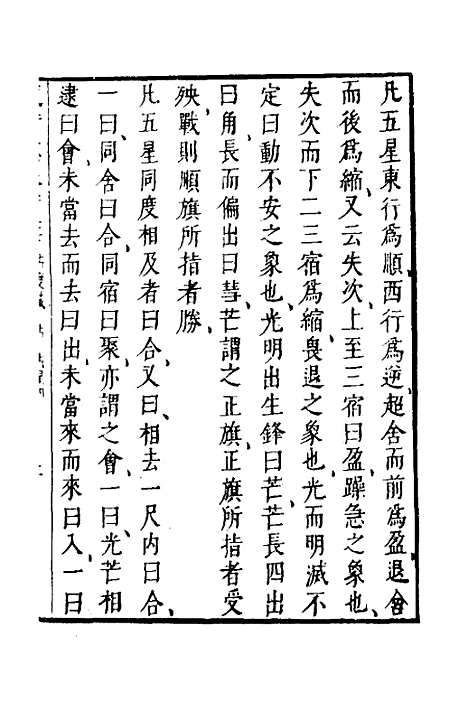 凡五星東行爲順西行爲逆超舍而前爲盈退舍
而後爲縮又云失次上至三宿曰盈躁急之象也
失次而下二三宿爲縮畏退之象也光而明滅不
定曰動不安之象也光明出生鋒曰芒芒長四出
曰角長而偏出曰彗芒謂之正旗正旗所指者受
殃戰則順旗所指者勝
凡五星同度相及者曰合又曰相去一尺內曰合
一曰同舍曰合同宿曰聚亦謂之會一曰光芒相
逮曰會未當去而去曰出未當來而來曰入一曰